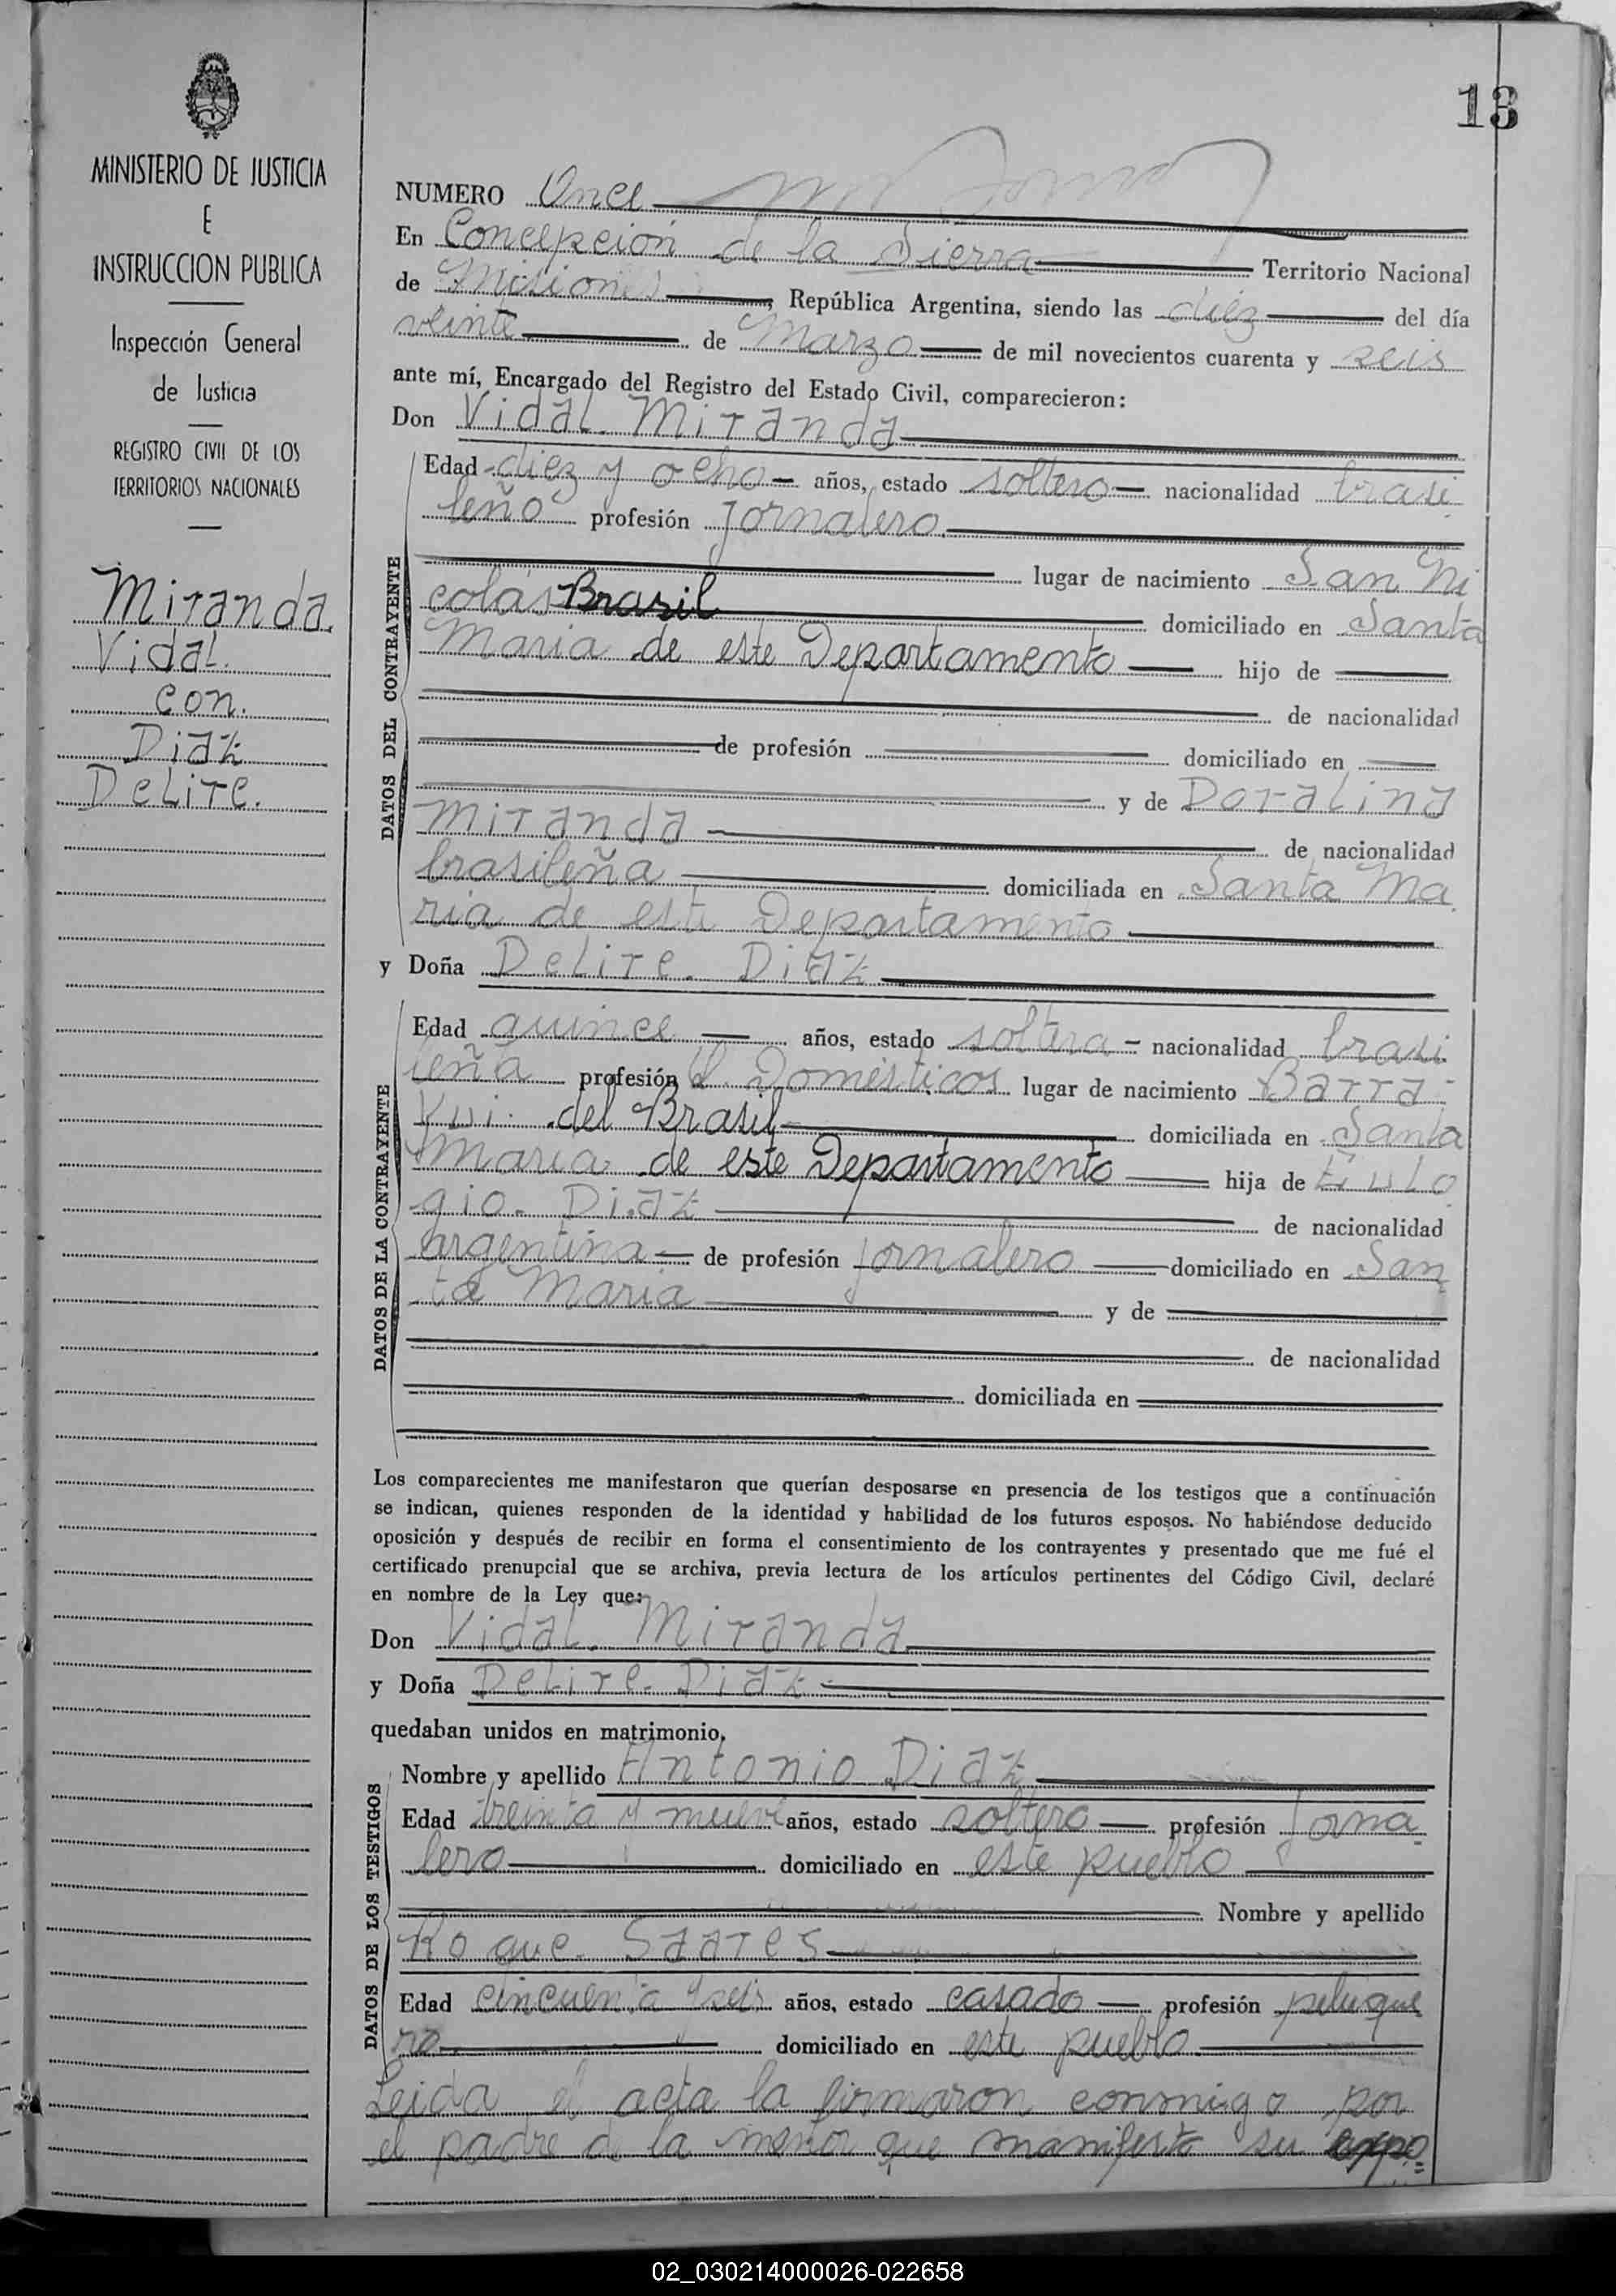 13
MINISTERIO DE JUSTICIA
E
INSTRUCCION PUBLICA
Inspección General
de Justicia
REGISTRO CIVIL DE LOS
TERRITORIOS NACIONALES
Miranda
Vidal.
con.
Diaz
Delire.
NUMERO Once
En Concepción de la Sierra Territorio Nacional
de Misiones, República Argentina, siendo las diez del día
veinte de Marzo de mil novecientos cuarenta y seis
ante mí, Encargado del Registro del Estado Civil, comparecieron:
Don Vidal Miranda
DATOS DEL CONTRAYENTE
Edad diez y ocho años, estado soltero nacionalidad brasi
leño profesión Jornalero
lugar de nacimiento San Ni
colás Brasil domiciliado en Santa
Maria de este Departamento hijo de
de nacionalidad
de profesión domiciliado en
y de Doralina
Miranda de nacionalidad
brasileña domiciliada en Santa Ma
ria de este Departamento
y Doña Delire. Diaz
DATOS DE LA CONTRAYENTE
Edad quince años, estado soltera nacionalidad brasi
leña profesión Q. Domésticos lugar de nacimiento Barra
Kui. del Brasil domiciliada en Santa
Maria de este Departamento hija de Eulo
gio. Diaz de nacionalidad
argentina de profesión jornalero domiciliado en San
ta Maria y de
de nacionalidad
domiciliada en
Los comparecientes me manifestaron que querían desposarse en presencia de los testigos que a continuación
se indican, quienes responden de la identidad y habilidad de los futuros esposos. No habiéndose deducido
oposición y después de recibir en forma el consentimiento de los contrayentes y presentado que me fué el
certificado prenupcial que se archiva, previa lectura de los artículos pertinentes del Código Civil, declaré
en nombre de la Ley que:
Don Vidal. Miranda
y Doña Delire. Diaz
quedaban unidos en matrimonio.
DATOS DE LOS TESTIGOS
Nombre y apellido Antonio Diaz
Edad treinta y nueve años, estado soltero profesión Jorna
lero domiciliado en este pueblo
Nombre y apellido
Roque. Saares
Edad cincuenta y seis años, estado casado profesión peluque
ro domiciliado en este pueblo
Leida el acta la firmaron conmigo por
el padre de la menor que manifestó su
02_030214000026-022658